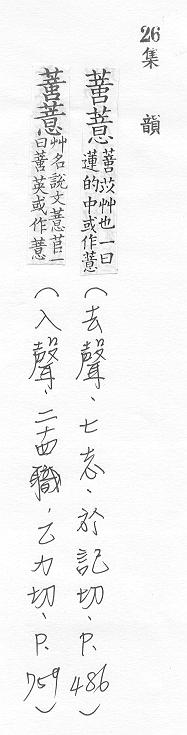 26 集韻
薏
苡艸也一曰
蓮的中或作薏
（去聲、七志、於記切、P.486）
薏
艸名說文薏苢一
曰英或作薏
（入聲、二十四職、乙力切、P.759）